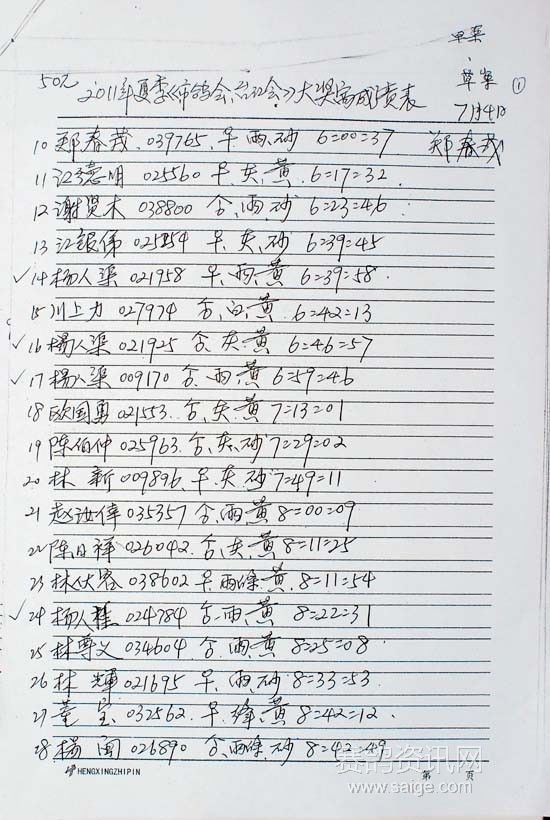 50元
2011年夏季《市鸽会、台江会》大奖赛成绩表
①
7月4日
郑春茂
10 郑春茂 039765 早 雨 砂 6=00=37
11 江德明 025560 早 灰 黄 6=17=32
12 谢贤木 038800 合 雨 砂 6=23=46
13 江银俤 025254 早 灰 砂 6=39=45
✓14 杨人渠 021958 早 雨 黄 6=39=58
15 川上力 027974 合 白 黄 6=42=13
✓16 楊人渠 021925 合 灰 黄 6=46=57
✓17 楊人渠 009170 合 雨 黄 6=59=46
18 欧国勇 021553 合 灰 黄 7=13=01
19 陈伯仲 025963 合 灰 砂 7=29=02
20 林 新 009896 早 灰 砂 7=49=11
21 赵汝俤 035357 合 雨 黄 8=00=09
22 陈日祥 026042 合 灰 黄 8=11=25
23 林伙 038602 早 雨 黄 8=11=54
✓24 杨人 024784 合 雨 黄 8=22=31
25 林尊义 034604 合 雨 黄 8=25=08
26 林 輝 021695 早 雨 砂 8=33=53
27 董 宝 032562 早 绛 黄 8=42=12
28 楊 闽 026890 合 雨 砂 8=42=49
HENGXINGZHIPIN
第 页
赛鸽资讯网
www.saige.com